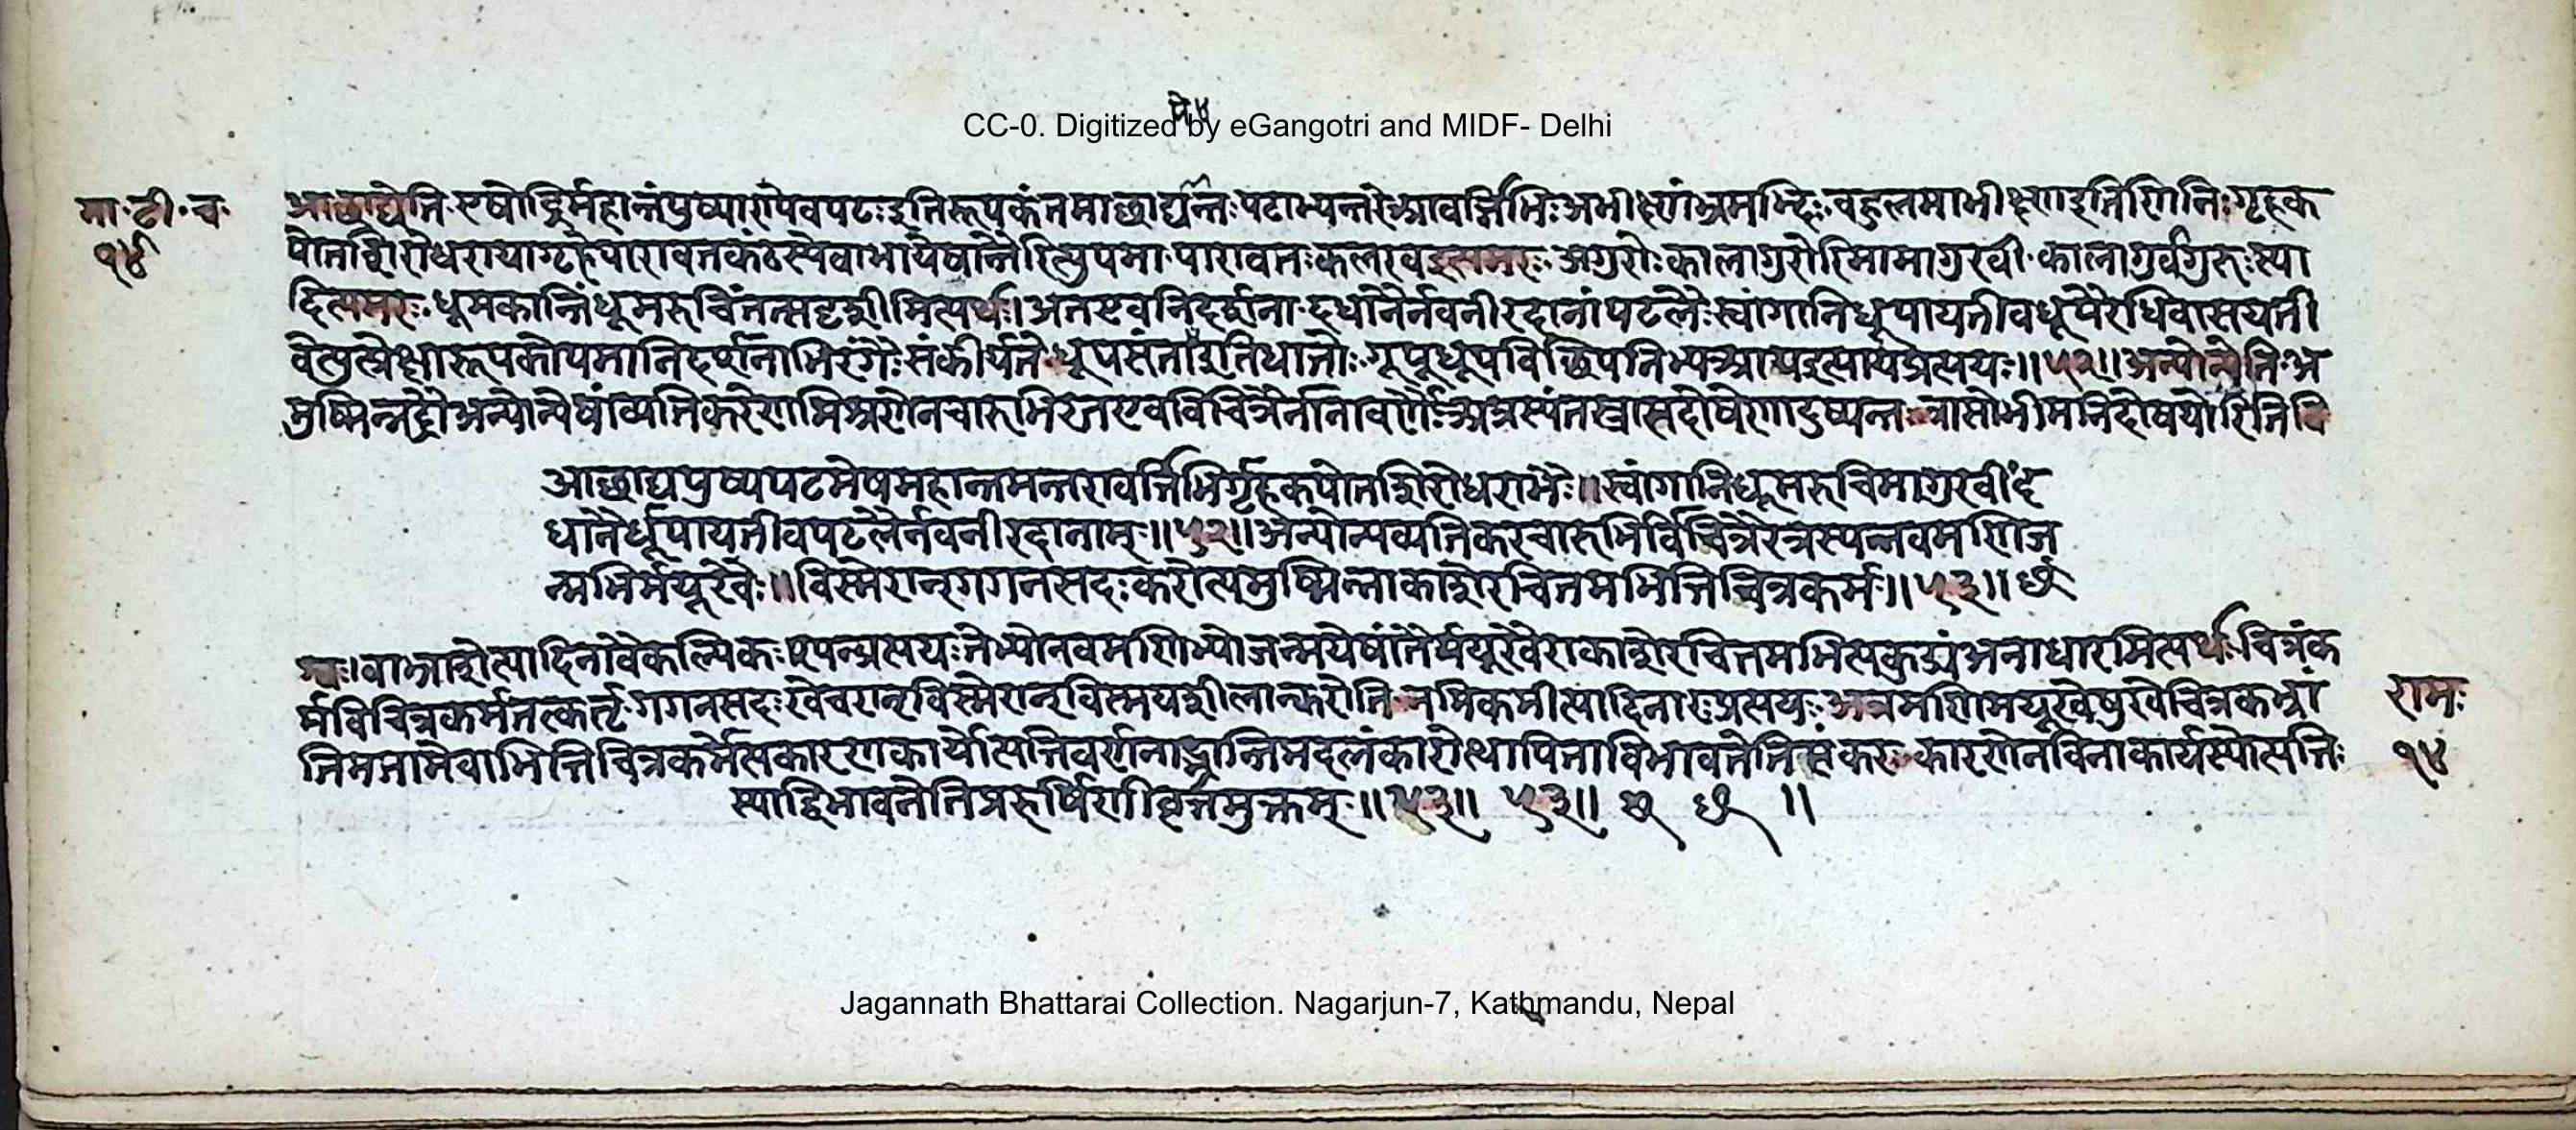 पे४
CC-0. Digitized by eGangotri and MIDF- Delhi
मा॰ टी॰ च॰
१४
आछाद्येति॰ एषोद्रिर्महान्तंपुष्पाण्येवपटःइतिरूपकंतमाछाद्यन्तःपटाभ्यन्तरेआवर्त्तिभिःअभीक्ष्णंभ्रमद्भिः॰वहुलमाभीक्ष्णइतिणिनिःगृहक
पोतशिरोधरायागृहपारावतकंठस्येवाभायेषान्तैरित्युपमा॰पारावतःकलरवइत्यमरः॰अगुरोःकालागुरोरिमामागुरवीं॰कालागुर्वगुरुःस्या
दित्यमरः॰धूमकान्तिंधूमरुचिंतत्सदृशीमित्यर्थः।अतएवनिदर्शना॰दधानैर्नवनीरदानांपटलैःस्वांगानिधूपायतीवधूपैरधिवासयती
वेत्युत्प्रेक्षारूपकोपमानिदर्शनाभिरंगैःसंकीर्यते॰धूपसंतापइतिधातोः॰गूपूधूपविछिपनिभ्यआयइत्यायप्रत्ययः॥५२॥अन्योन्येति॰अ
मुष्मिन्नद्रौअन्योन्येषांव्यतिकरेणमिश्रणेनचारुभिरतएवविचित्रैर्नानावर्णैःअत्रस्यंतस्त्रासदोषेणादुष्यन्तः॰त्रासोभीमनिदोषयोरितिवि
आछाद्यपुष्पपटमेषमहान्तमन्तरावर्त्तिभिर्गृहकपोतशिरोधराभैः॥स्वांगानिधूमरुचिमागुरवींद
धानैर्धूपायतीवपटलैर्नवनीरदानाम्॥५२॥अन्योन्यव्यतिकरचारुभिर्विचित्रैरत्रस्यन्नवमणिज
न्मभिर्मयूखैः॥विस्मेरान्गगनसदःकरोत्यमुष्मिन्नाकाशेरचितमभित्तिचित्रकर्म॥५३॥छ
श्वः।वाभ्राशेत्यादिनावैकल्पिकःश्यन्प्रत्ययःतेभ्योनवमणिभ्योजन्मयेषांतैर्मयूखैराकाशेरचितमभित्यकुड्यंअनाधारमित्यर्थःचित्रंक
र्मविचित्रकर्मतत्कर्त्तृगगनसदःखेचरान्विस्मेरान्विस्मयशीलान्करोति॰नमिकम्पीत्यादिनारप्रत्ययः॰अत्रमणिमयूखेषुखेचित्रकभ्रां
तिमतामेवाभित्तिचित्रकर्मेत्यकारणकार्योत्पत्तिवर्णनाद्भ्रान्तिमदलंकारोत्थापिताविभावनेतिसंकरः॰कारणेनविनाकार्यस्योत्पत्तिः
स्याद्विभावनेतिप्रहर्षिणीवृत्तमुक्तम्॥५३॥ ५३॥ छ ॥
रामः
१४
Jagannath Bhattarai Collection. Nagarjun-7, Kathmandu, Nepal